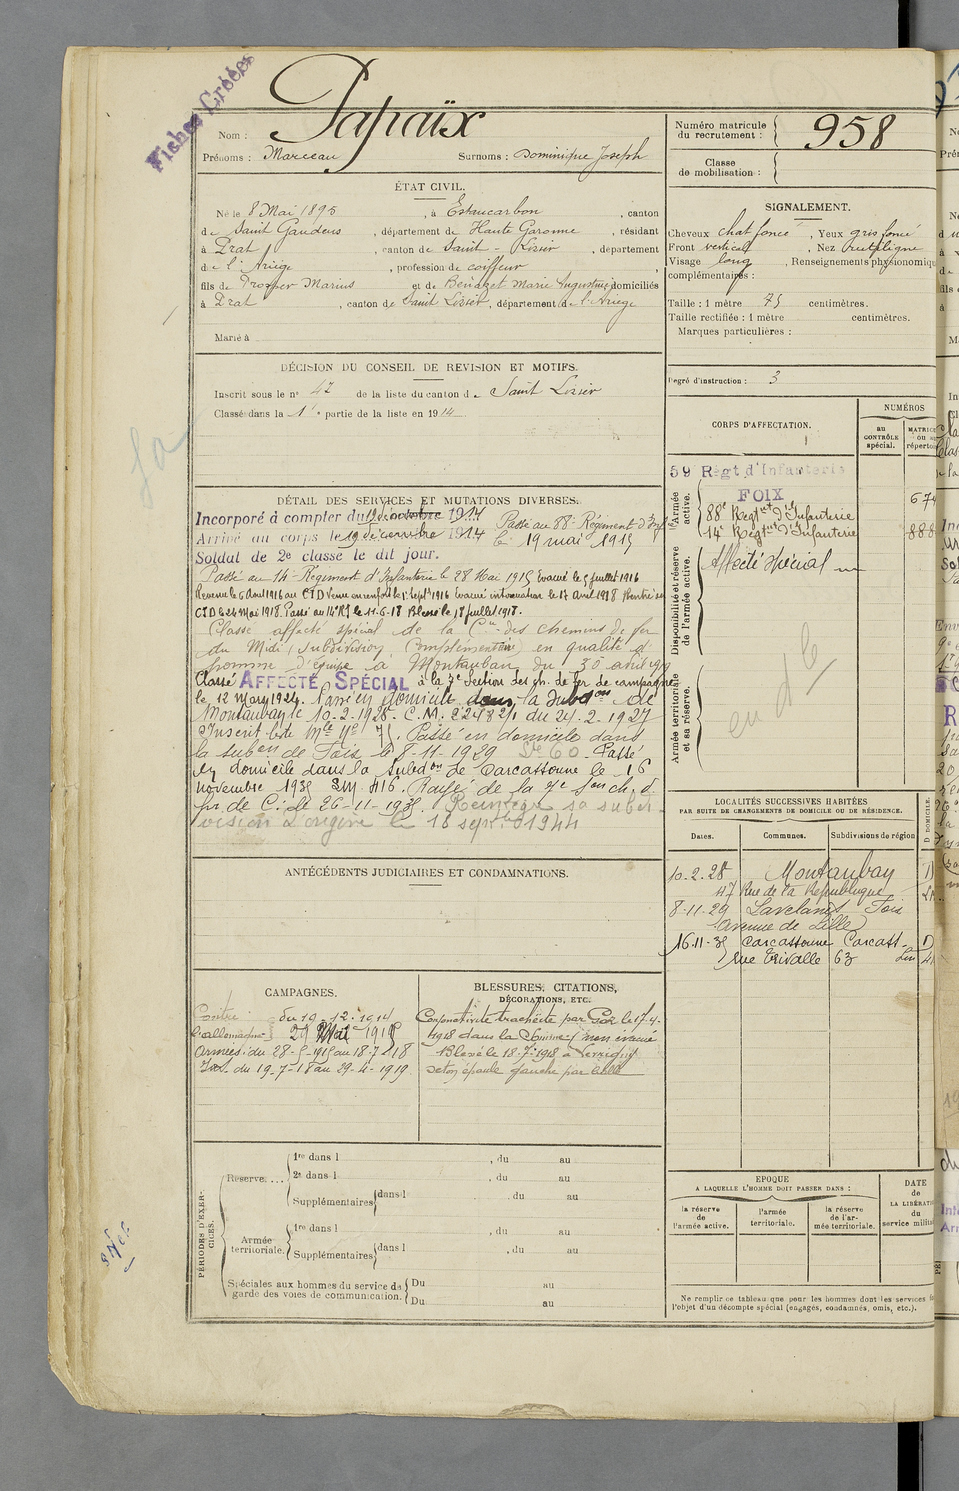 Fiches Créées
Nom : Papaïx
Prénoms : Marceau Surnoms : Dominique Joseph
Numéro matricule du recrutement : 958
Classe de mobilisation :
ÉTAT CIVIL.
Né le 8 Mai 1895, à Estancarbon, canton
de Saint Gaudens, département de Haute Garonne, résidant
à Prat, canton de Saint-Lizier, département
de l'Ariège, profession de coiffeur,
fils de Prosper Marius et de Benazet Marie Augustine domiciliés
à Prat, canton de Saint Lizier, département de l'Ariège
Marié à
SIGNALEMENT.
Cheveux chat foncé, Yeux gris foncé
Front vertical, Nez rectiligne
Visage long, Renseignements physionomiqu
complémentaires :
Taille : 1 mètre 75 centimètres.
Taille rectifiée : 1 mètre centimètres.
Marques particulières :
Degré d'instruction : 3
DÉCISION DU CONSEIL DE REVISION ET MOTIFS.
Inscrit sous le n° 47 de la liste du canton de Saint Lizier
Classé dans la 1re partie de la liste en 1914
DÉTAIL DES SERVICES ET MUTATIONS DIVERSES.
Incorporé à compter du 19 décembre 1914
Arrivé au corps le 19 décembre 1914
Soldat de 2e classe le dit jour.
Passé au 88e Régiment d'Inf
le 19 mai 1915
Passé au 14e Régiment d'Infanterie le 28 Mai 1915 Evacué le 5 juillet 1916
Revenu le 6 Aout 1916 au CID Venu en renfort le 1er Sept 1916 Evacué intoxication le 17 Avril 1918 Rentré au
CID le 24 Mai 1918. Passé au 14e RI le 11-6-18 Blessé le 18 juillet 1918.
Classé affecté spécial de la Cie des chemins de fer
du Midi (subdivision complémentaire) en qualité d'
homme d'équipe à Montauban du 30 avril
Classé AFFECTÉ SPÉCIAL à la 7e Section des ch. de fer de campagne
le 12 Mars 1924. domicile dans la Subdon de
Montauban le 10-2-1928. C.M. du 24-2-1927
Inscrit liste Mle Passé en domicile dans
la subon de Foix le 8-11-1929 Passé
en domicile dans la subdon de Carcassonne le 16
novembre 1935 416. Rayé de la 7e Son ch. d.
fer de C. le 26-11-1935. Réintégré sa subdi-
vision d'origine le 18 septbre 1944
CORPS D'AFFECTATION.
NUMÉROS
au CONTRÔLE spécial.
MATRIC OU au répertoi
Armée active.
59 Régt d'Infanterie
FOIX
674
88e Regt d'Infanterie
14e Regt d'Infanterie 888
Disponibilité et réserve de l'armée active.
Affecté Spécial
Armée territoriale et sa réserve.
LOCALITÉS SUCCESSIVES HABITÉES
PAR SUITE DE CHANGEMENTS DE DOMICILE OU DE RÉSIDENCE.
Dates. Communes. Subdivisions de région D DOMICILE.
10.2.28 Montauban D
47 Rue de la République
8-11-29 Lavelanet Foix
Avenue de Lille
16.11-35 Carcassonne Carcass. D
rue Trivalle 63
ANTÉCÉDENTS JUDICIAIRES ET CONDAMNATIONS.
CAMPAGNES.
Contre l'allemagne du 19.12.1914
29 Mai 1915
Armées : du 28-5-1915 au 18-7-18
Int. du 19-7-18 au 29-4-1919
BLESSURES, CITATIONS,
DÉCORATIONS, ETC.
Conjonctivite trachéite par Gaz le 17-4-
1918 dans la Somme, non évacué
Blessé le 18-7-1918 à
seton épaule gauche par balle
PÉRIODES D'EXERCICES.
Réserve.... 1re dans l , du au
2e dans l , du au
Supplémentaires dans l , du au
Armée territoriale. 1re dans l , du au
Supplémentaires dans l , du au
Spéciales aux hommes du service de garde des voies de communication. Du au
Du au
EPOQUE
A LAQUELLE L'HOMME DOIT PASSER DANS :
la réserve de l'armée active.
l'armée territoriale.
la réserve de l'armée territoriale.
DATE de LA LIBÉRATI du service milit
Ne remplir ce tableau que pour les hommes dont les services
l'objet d'un décompte spécial (engagés, condamnés, omis, etc.).